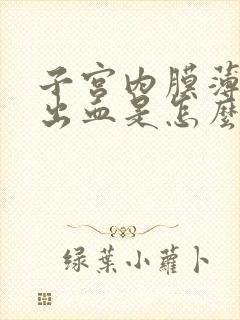 子宫内膜薄
出血是怎麽
绿葉小蘿卜